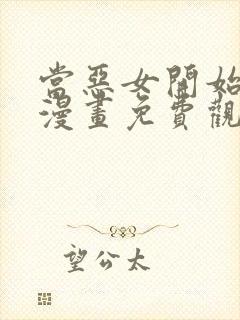 當惡女開始
漫畫免費觀
望公太